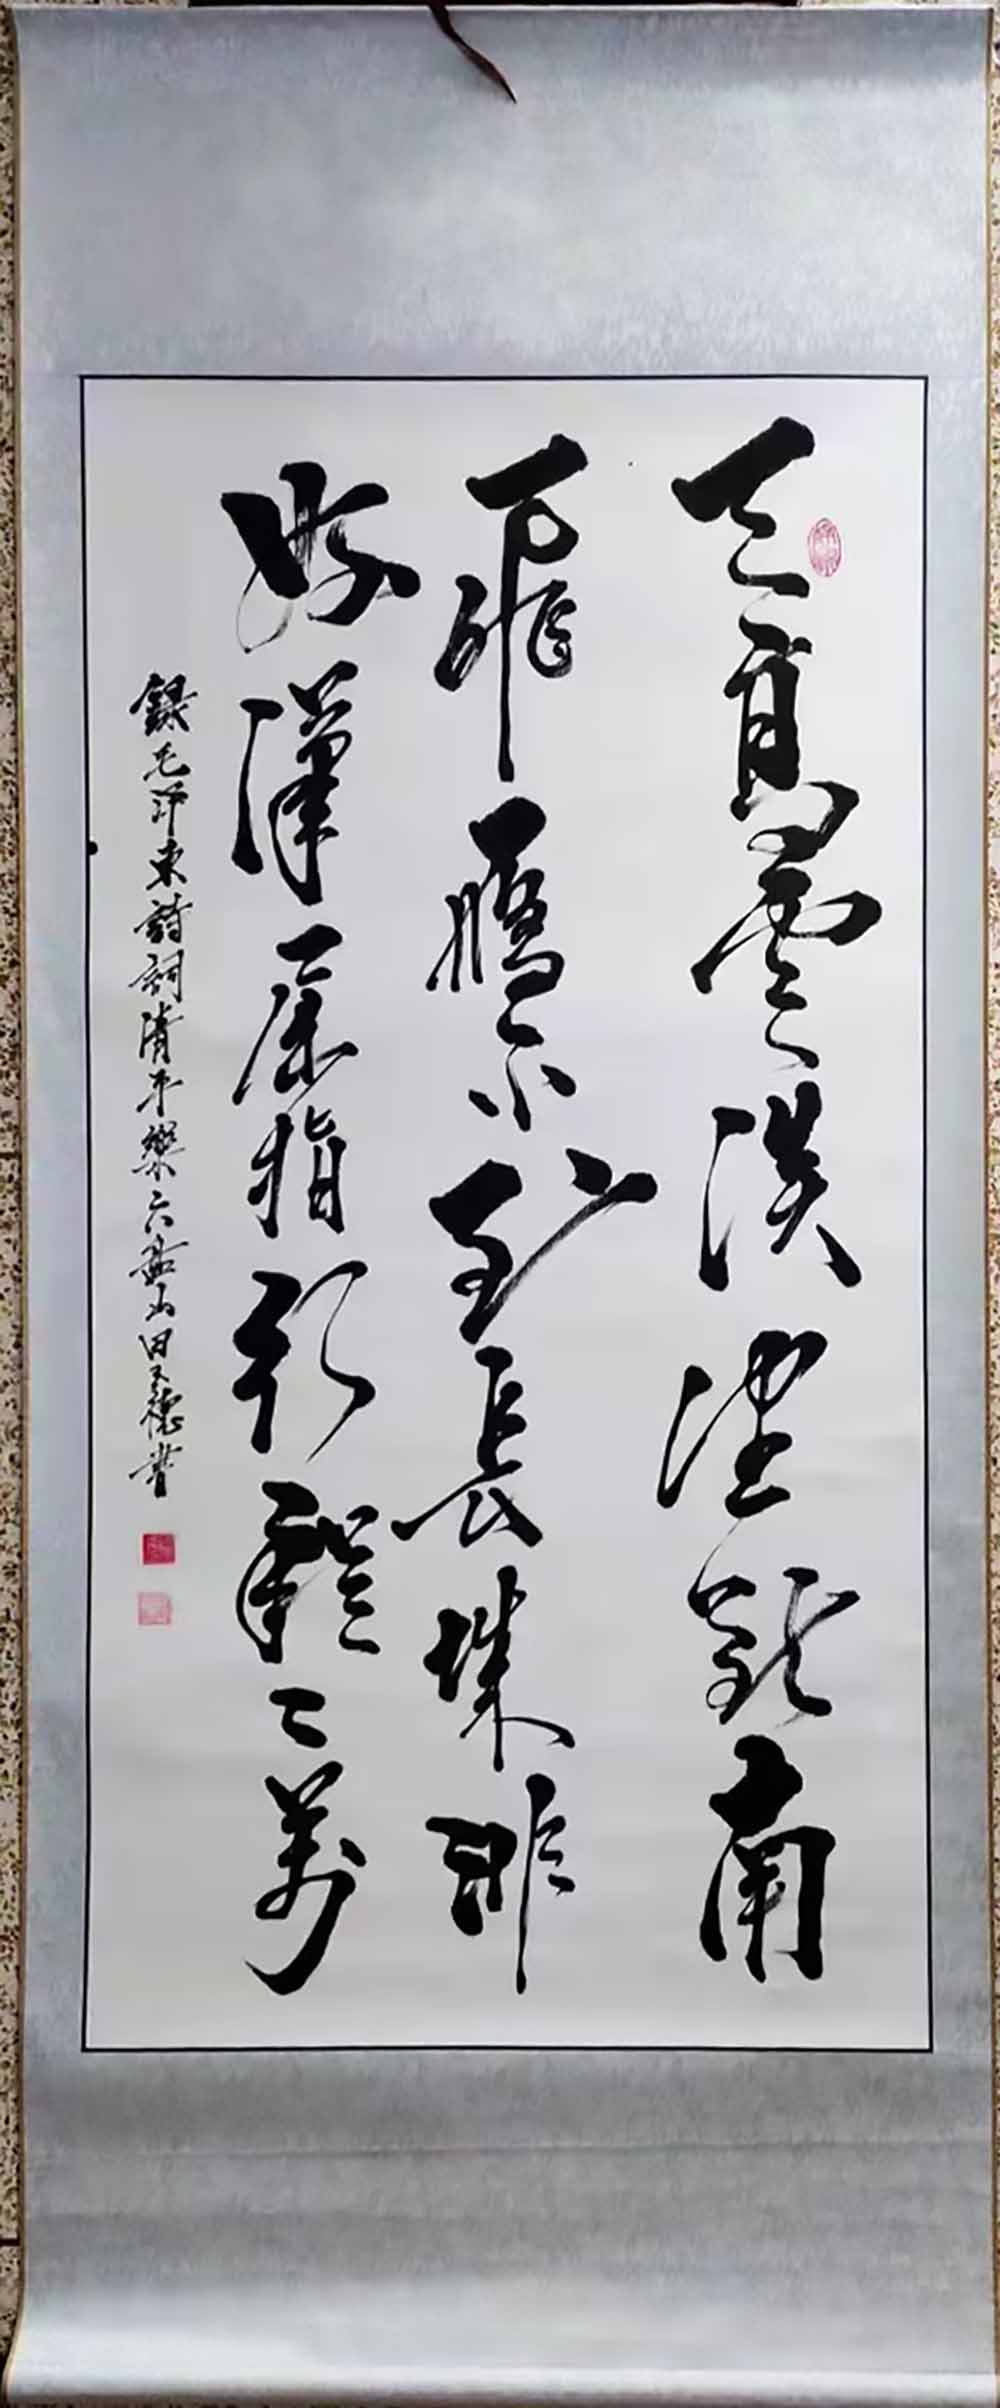 天高雲淡望斷南
飛雁不到長城非
好漢屈指行程二萬
錄毛泽東詩詞清平樂六盘山田德書